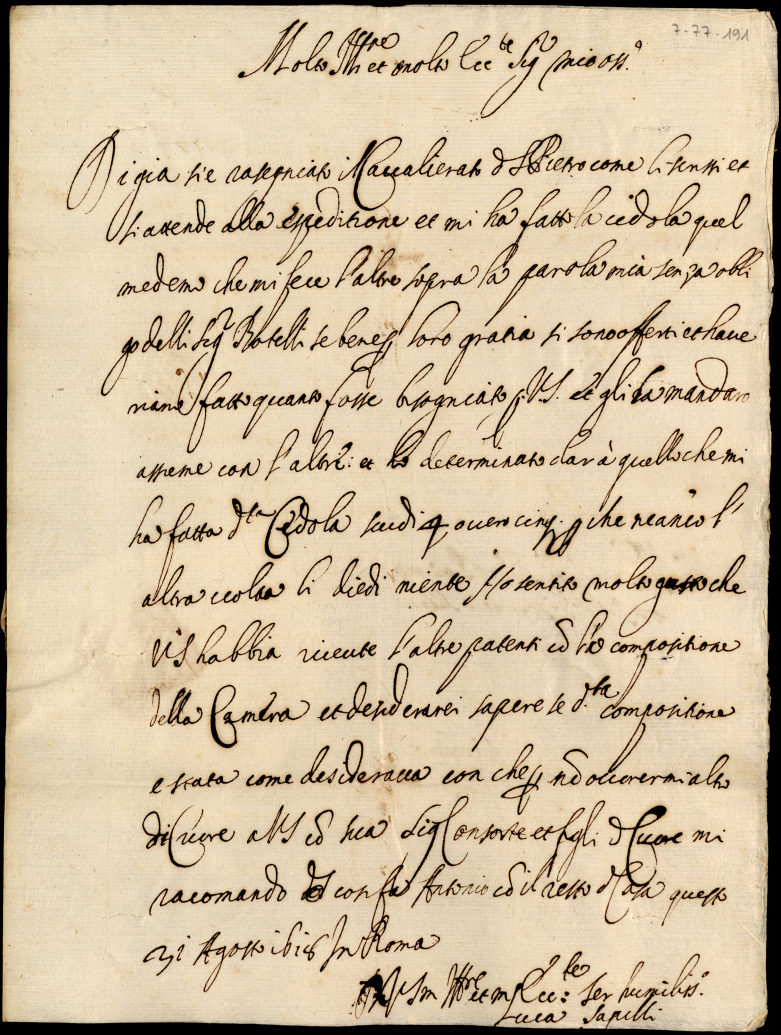 7-77-191
Molto Ill.re et molto Ecc.te Sig.r mio oss.o
Di gia si e rasegniato il Cavalierato d S Pietro come li scrissi et
si attende alla espeditione et mi ha fatto la cedola quel
medemo che mi fece l'altre sopra la parola mia senza obli
go delli Sig.ri Rotelli se bene p loro gratia si sono offerti et have
riano fatto quanto fosse bisogniato p V.S. et gli la mandaro
assieme con l'altre: et ho determinato dar à quello che mi
ha fatta d.ta Cedola scudi 4 overo cinq. p che neanco l'
altra volta li diedi niente Ho sentito molto gusto che
VS habbia riceute l'altre patenti cō la compositione
della Camera et desiderarei sapere se d.ta compositione
e stata come desiderava con che p nō occurermi altro
di Cuore a VS cō sua Sig.ra Consorte et figli d Cuore mi
racomando cosi fa Antonio cō il resto d Casa questo
31 Agosto 1618 In Roma
D V S m Ill.re et m Ecc.te Ser humiliss.o
Luca Sapelli